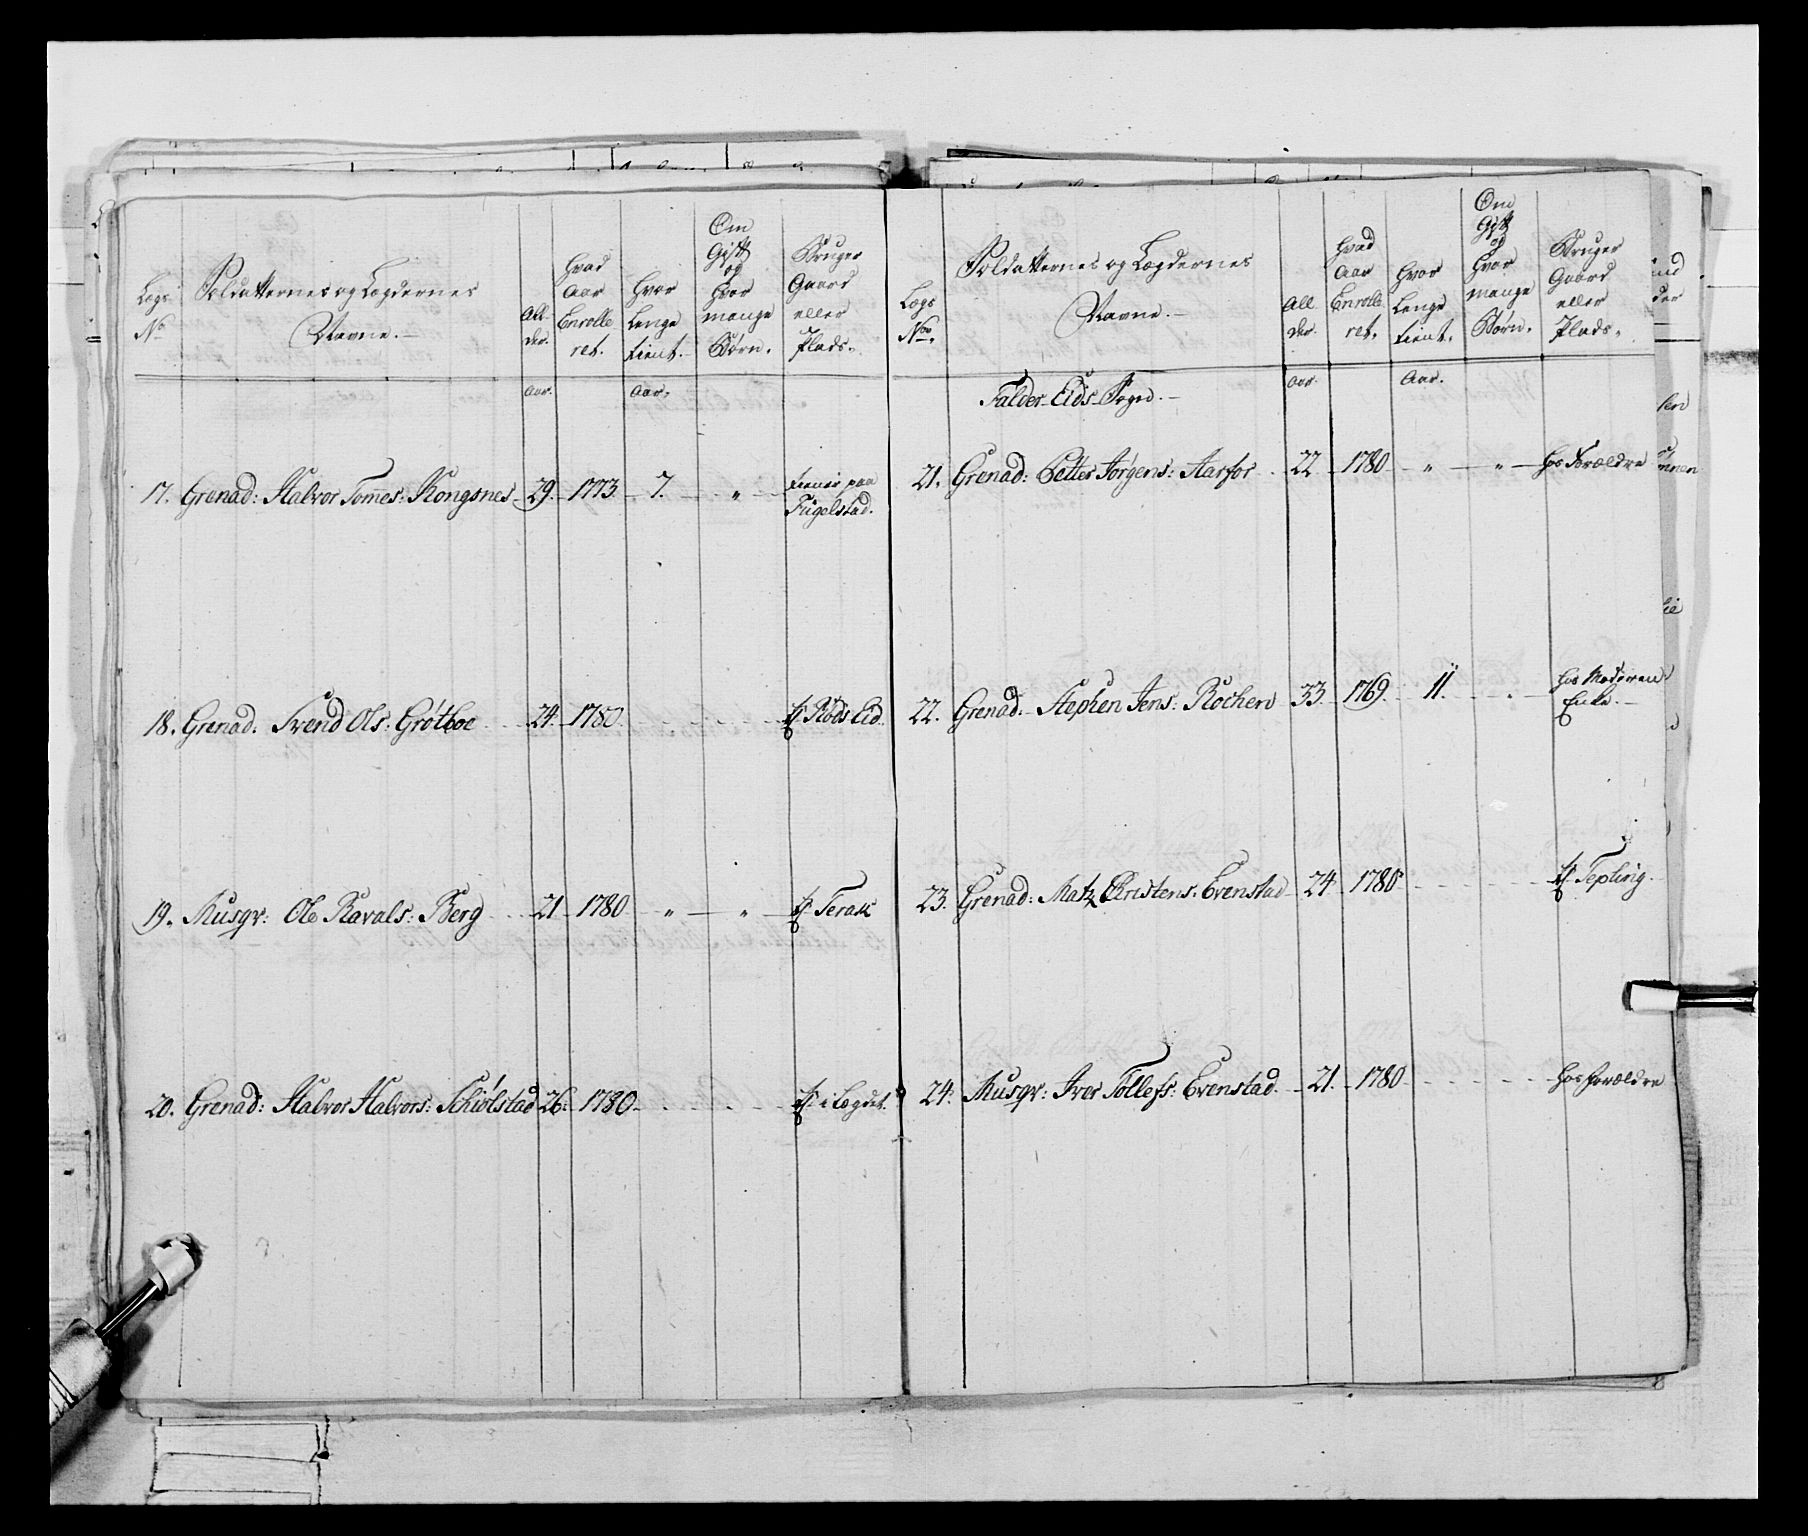 Lægs No
Soldatternes og Lægdernes Navne.
All der.
Hvad Aar Enrolle ret.
Hvor Lenge tient.
Om Gift og Hvor mange Børn.
Bruger Gaard eller Plads.
Aar. Aar.
17. Grenad: Halvor Tomes: Kongsnes 29. 1773. 7. " tiener paa
Fugelstad.
18. Grenad. Svend Ols: Grøtboe 24. 1780. Røds Eid
19. Musqr: Ole Ravals: Berg 21 1780 " "
20. Grenad: Halvor Halvors: Schiølstad 26. 1780. i Lægdet.
Lægs No.
Soldatternes og Lægdernes Navne.
All der.
Hvad Aar Enrolle ret.
Hvor Lenge tient.
Om Gift og Hvor mange Børn.
Bruger Gaard eller Plads.
Aar. Aar.
Falder-Eids-Sogn.
21. Grenad: Petter Jørgens: Aarfor 22 1780 " " hos Forældre
22. Grenad: Stephen Jens: Rochen 33. 1769. 11. hos Moderen
Enke.
23. Grenad: Matz Christens: Evenstad 24 1780 Tepling.
24. Musqr: Iver Tollefs: Evenstad. 21. 1780. hos Forældre